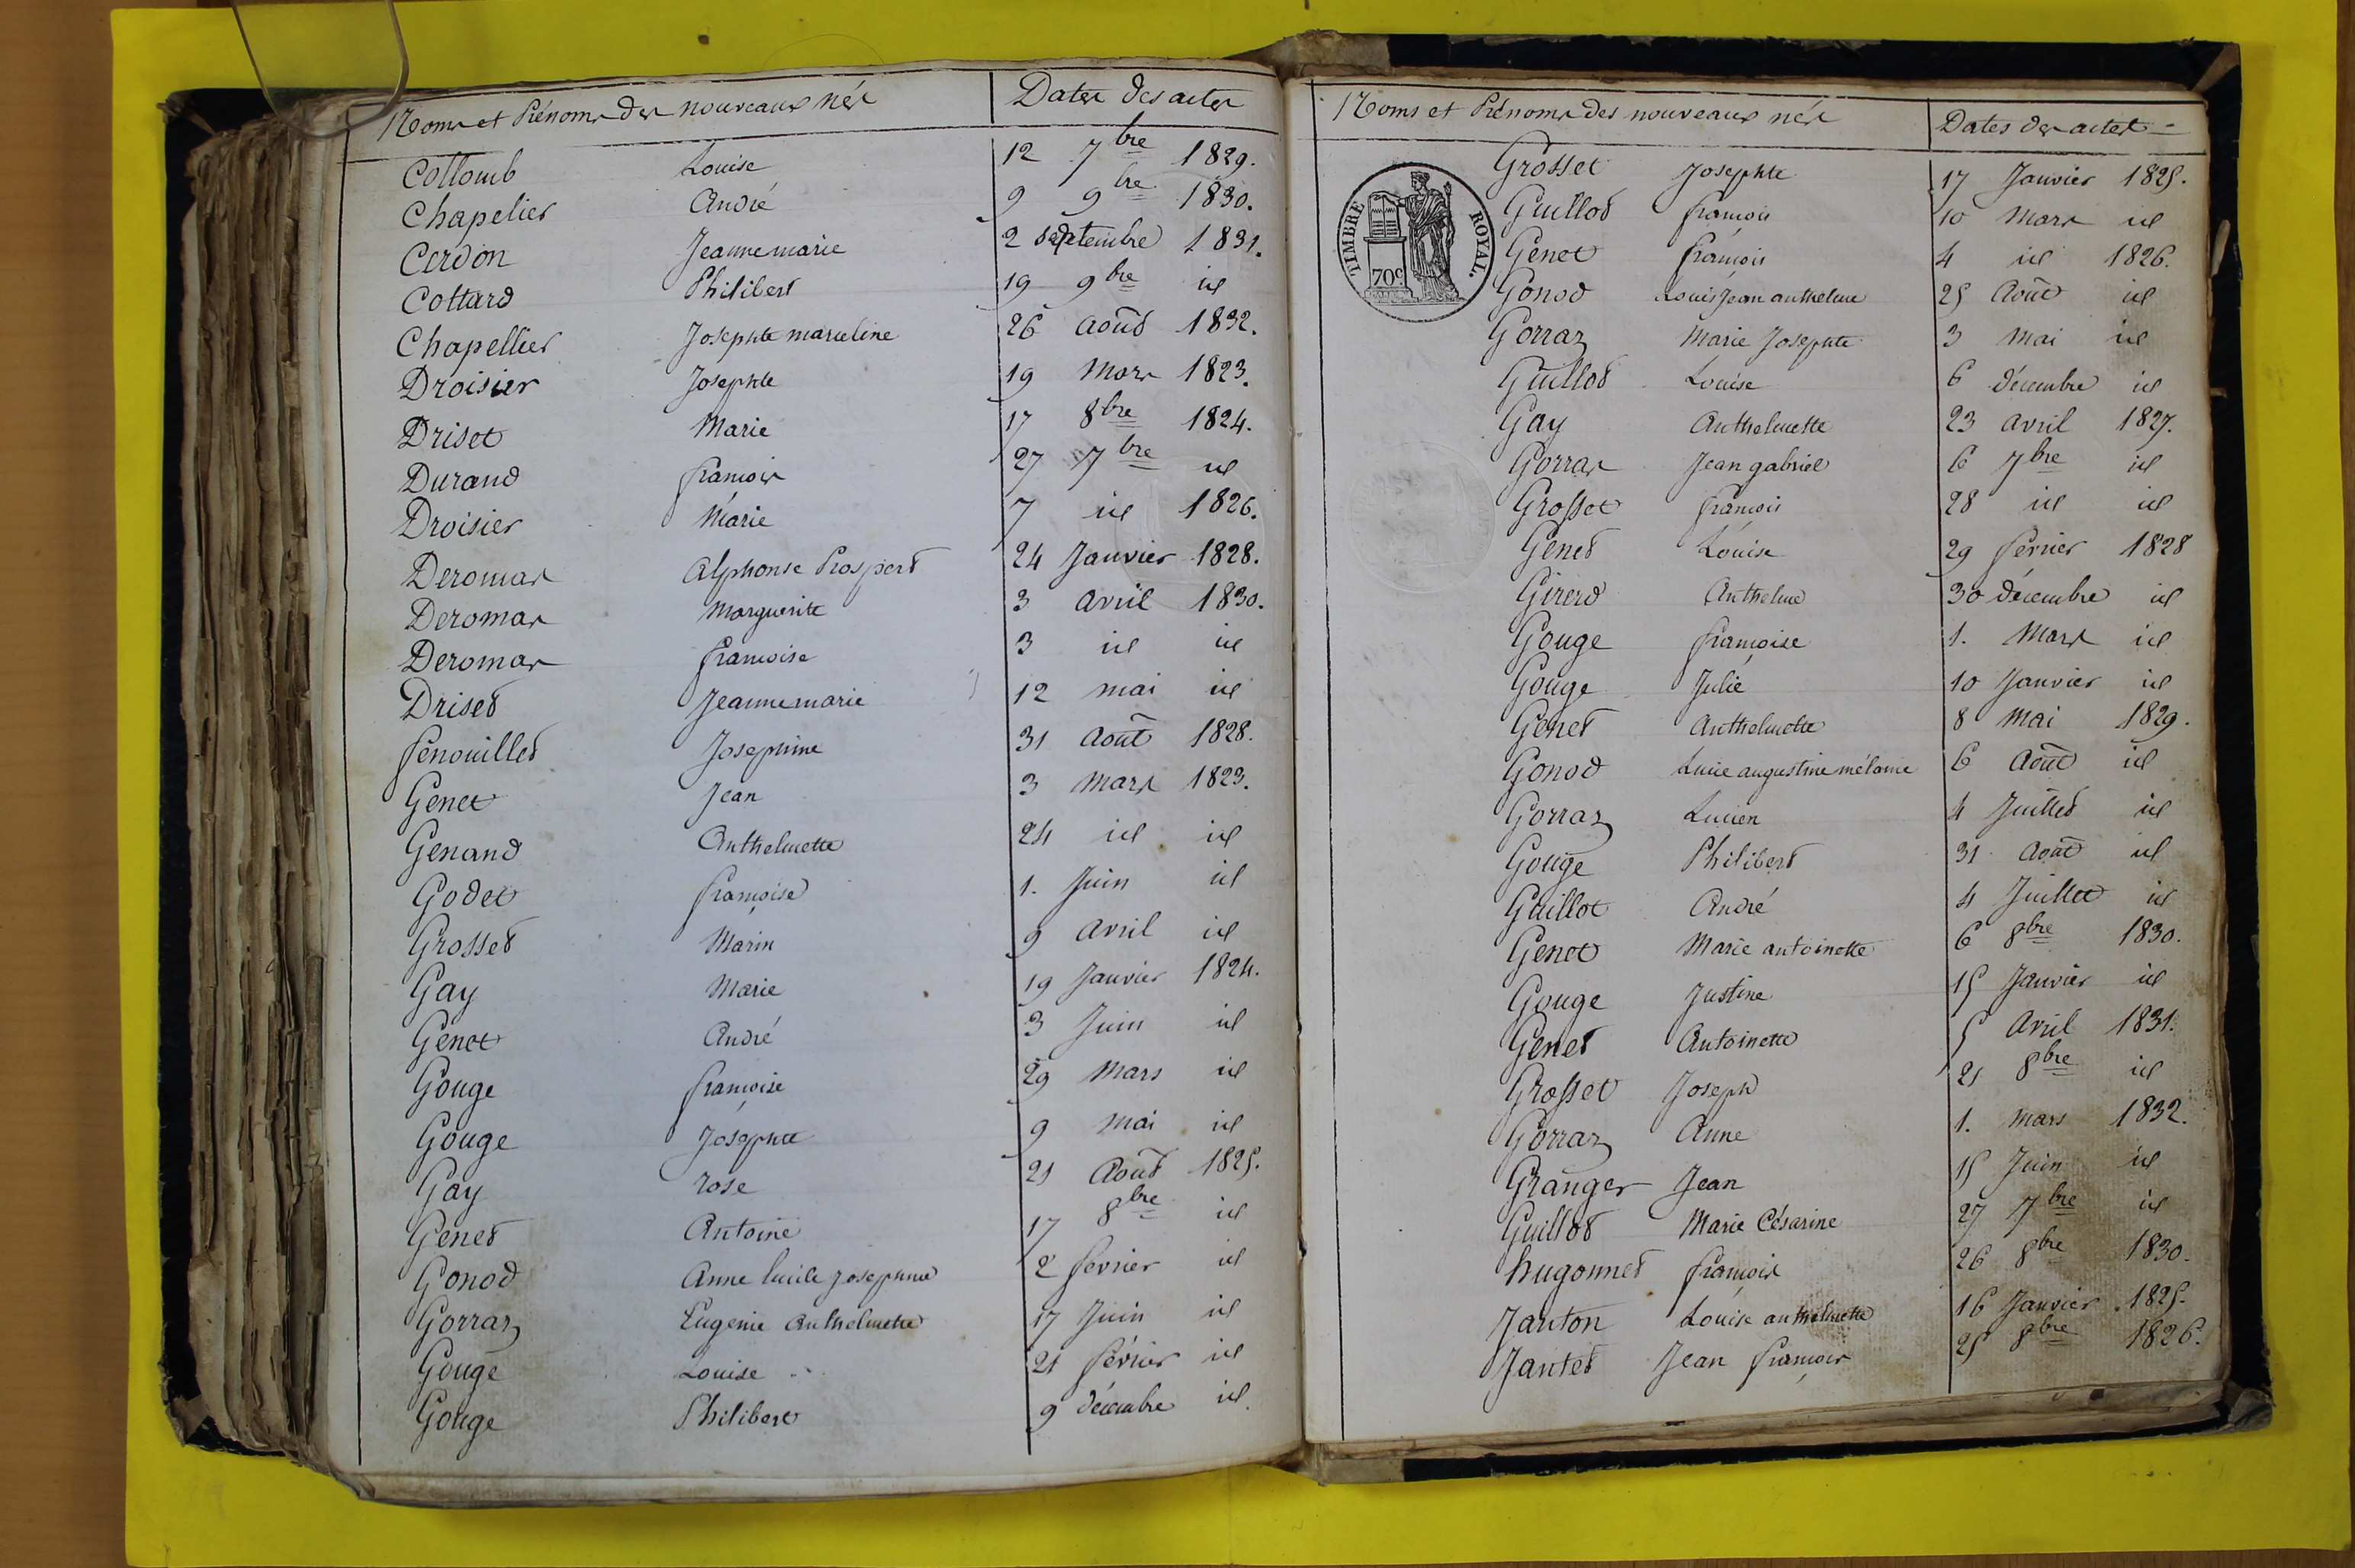 Noms et Prénoms des nouveaux nés Dates des actes
Collomb Louise 12 7bre 1829.
Chapelier André 9 9bre 1830.
Cerdon Jeanne marie 2 septembre 1831.
Cottard Philibert 19 9bre id
Chapellier Josephte marceline 26 août 1832.
Droisier Josephte 19 Mars 1823.
Driset Marie 17 8bre 1824.
Durand françois 27 7bre id
Droisier Marie 7 id 1826.
Deromas Alphonse Prospert 24 Janvier 1828.
Deromas Marguerite 3 avril 1830.
Deromas françoise 3 id id
Driset Jeanne marie 12 mai id
fenouillet Josephine 31 Août 1828.
Genet Jean 3 Mars 1823.
Genand Anthelmette 24 id id
Godet françoise 1. Juin id
Grosset Marin 9 Avril id
Gay Marie 19 Janvier 1824.
Genet André 3 Juin id
Gouge françoise 29 Mars id
Gouge Josephte 9 Mai id
Gay rose 21 Août 1825.
Genet Antoine 17 8bre id
Gonod Anne lucile Josephine 2 février id
Gorraz Eugenie Anthelmette 17 Juin id
Gouge Louise 21 février id
Gouge Philibert 9 décembre id
Noms et Prénoms des nouveaux nés Dates des actes
TIMBRE ROYAL.
70c
Grosset Josephte 17 Janvier 1825.
Guillot françois 10 Mars id
Genet françois 4 id 1826.
Gonod Louis Jean anthelme 25 Août id
Gorraz Marie Josephte 3 Mai id
Guillot Louise 6 décembre id
Gay Anthelmette 23 avril 1827.
Gorras Jean gabriel 6 7bre id
Grosset françois 28 id id
Genet Louise 29 février 1828
Girerd Anthelme 30 décembre id
Gouge françoise 1. Mars id
Gouge Julie 10 Janvier id
Genet Anthelmette 8 Mai 1829.
Gonod Lucie augustine mélanie 6 Août id
Gorraz Lucien 4 Juillet id
Gouge Philibert 31 août id
Guillot André 4 Juillet id
Genet Marie antoinette 6 8bre 1830.
Gouge Justine 15 Janvier id
Genet Antoinette 5 Avril 1831.
Grosset Joseph 21 8bre id
Gorraz Anne 1. Mars 1832.
Granger Jean 15 Juin id
Guillot Marie Césarine 27 7bre id
hugonnet françois 26 8bre 1830.
Janton Louise anthelmette 16 Janvier 1825.
Jantet Jean françois 25 8bre 1826.